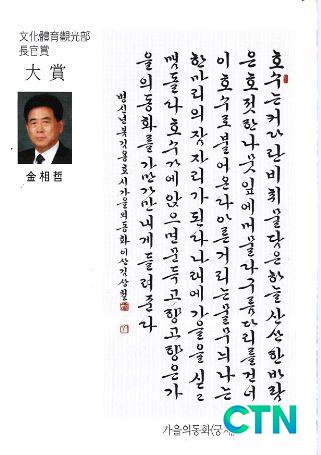 文化體育觀光部
長官賞
大賞
金相哲
호수는커다란비취물담은하늘산산한바람
은호젓한나뭇잎에머물다구름다리를건너
이호수로불어온다아른거리는물무늬나는
한마리의잠자리가된다나래에가을을싣고
맴돌다호수가에앉으면문득고향고향은가
을의동화를가만가만내게들려준다
병신년 김용호시가을의동화이산김상철
가을의동화(궁체)
CTN